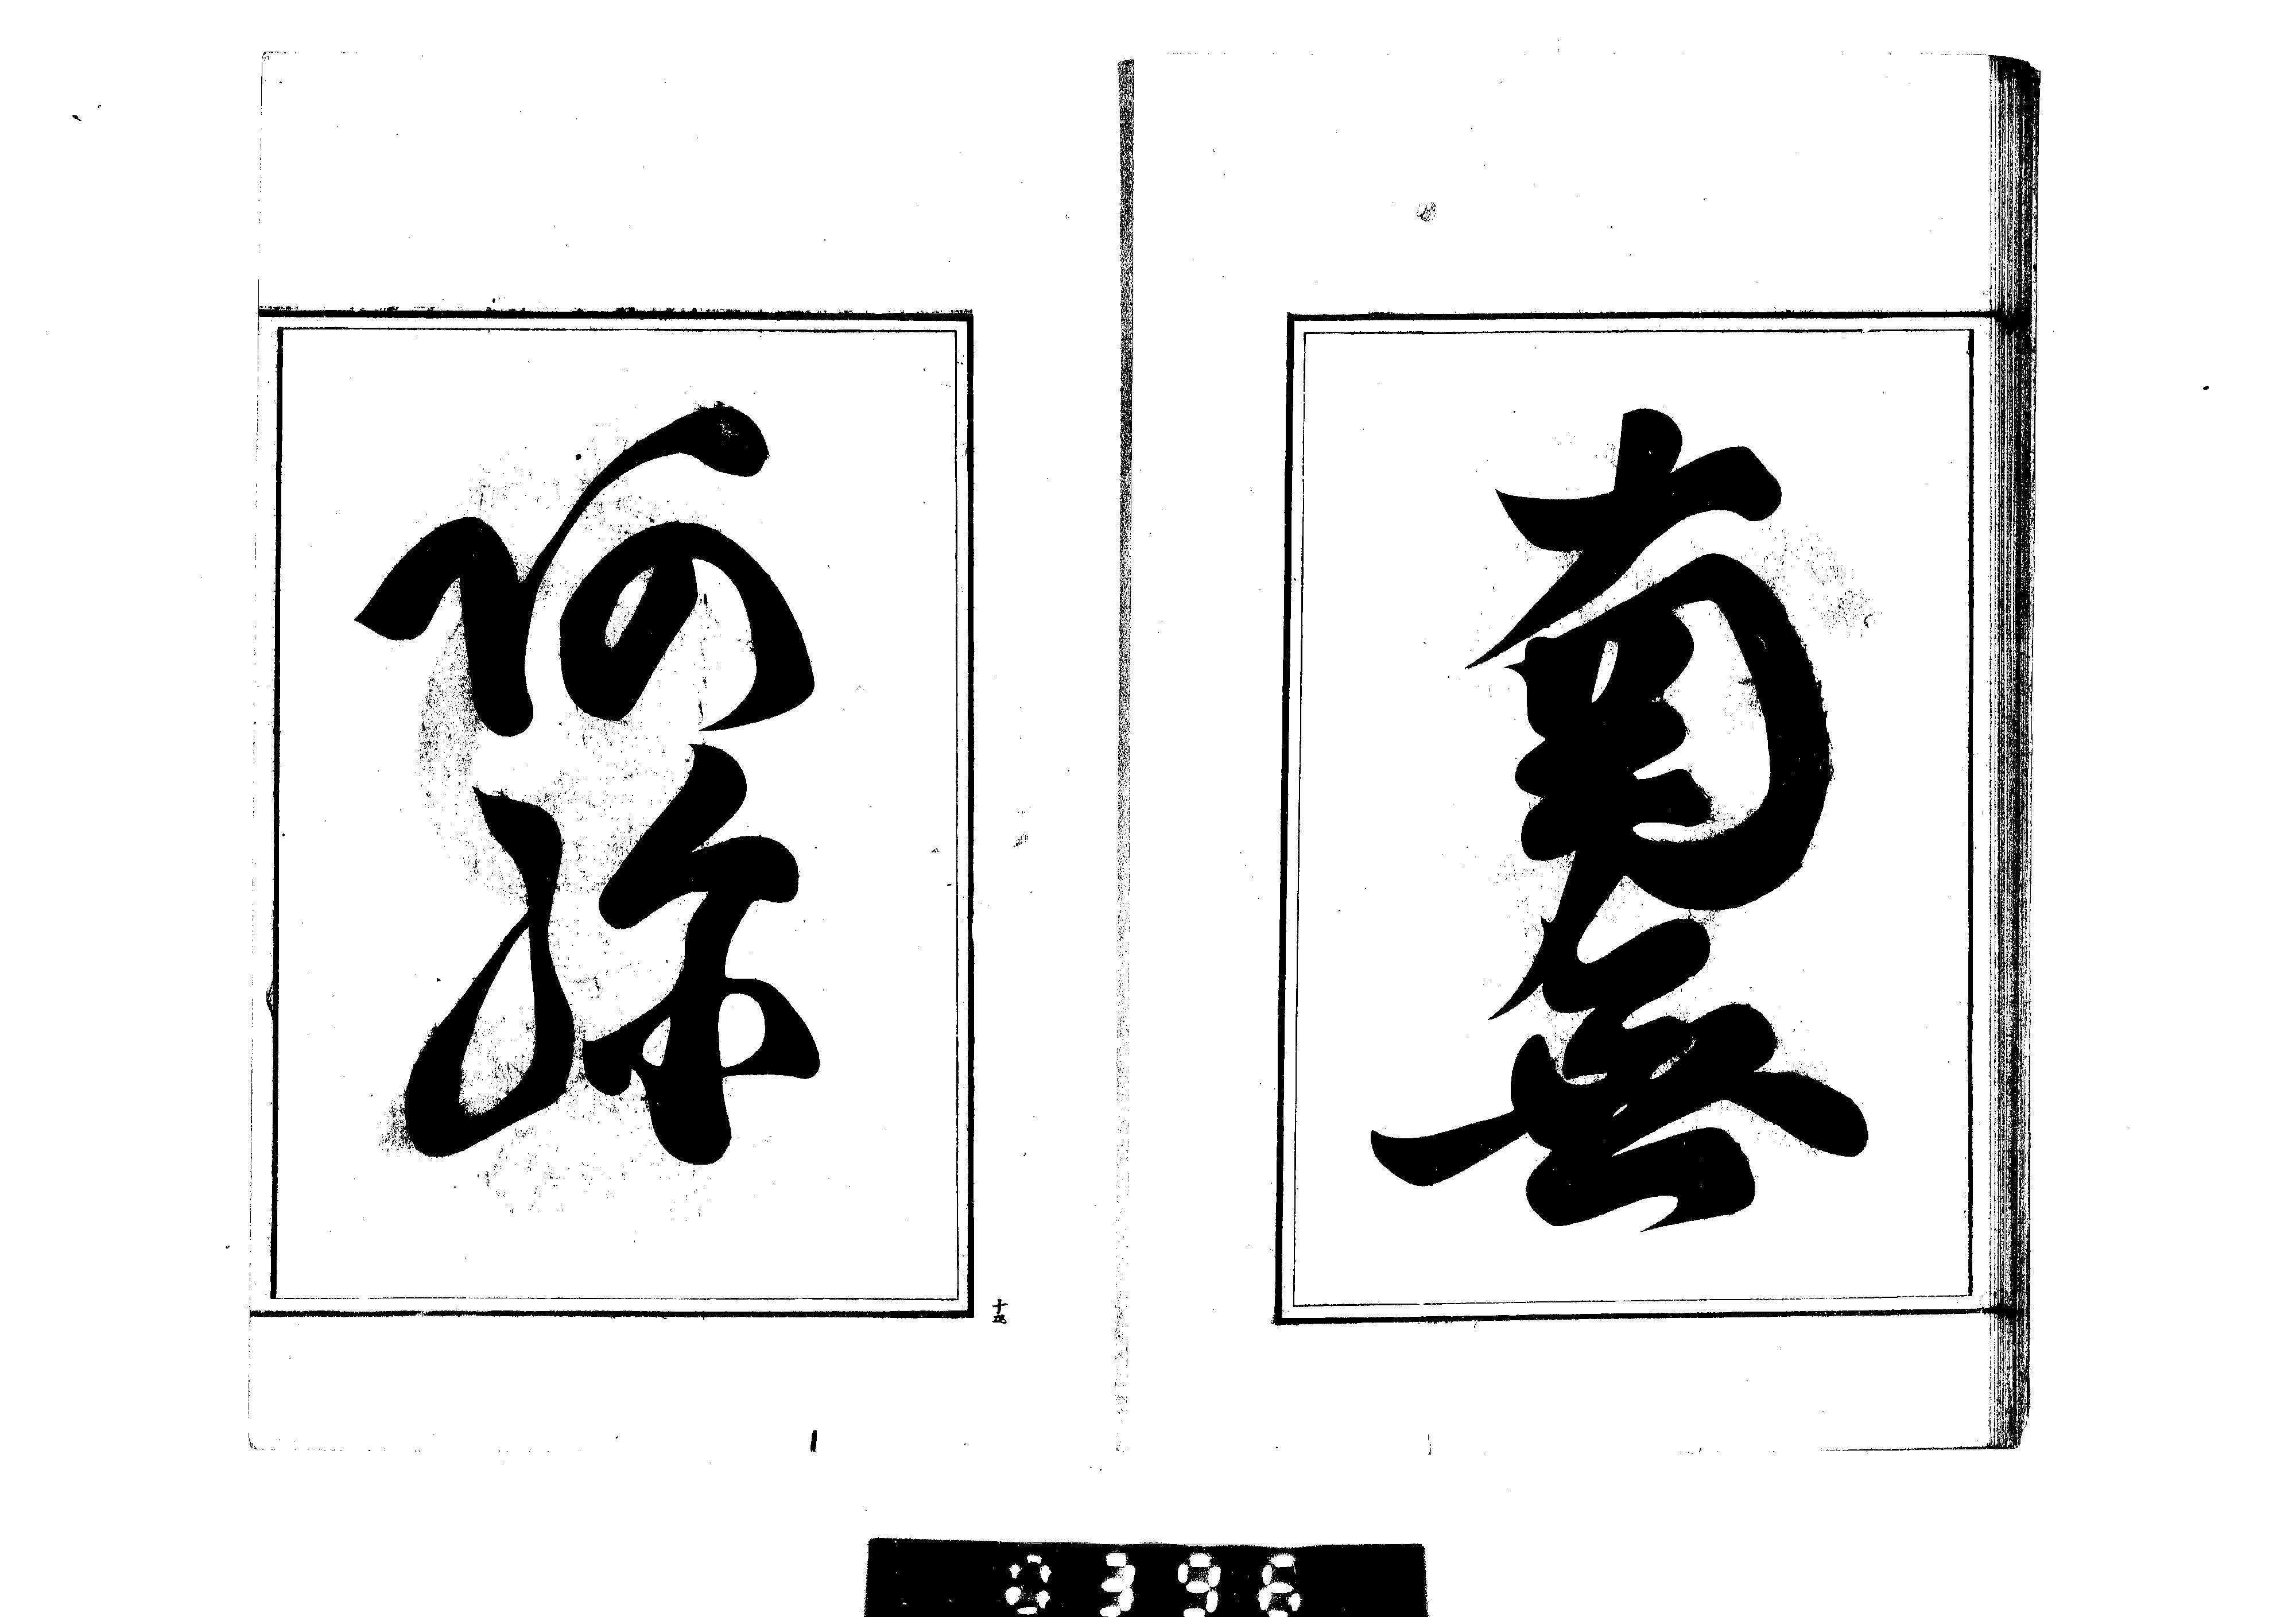 南無
阿弥
十五
0396